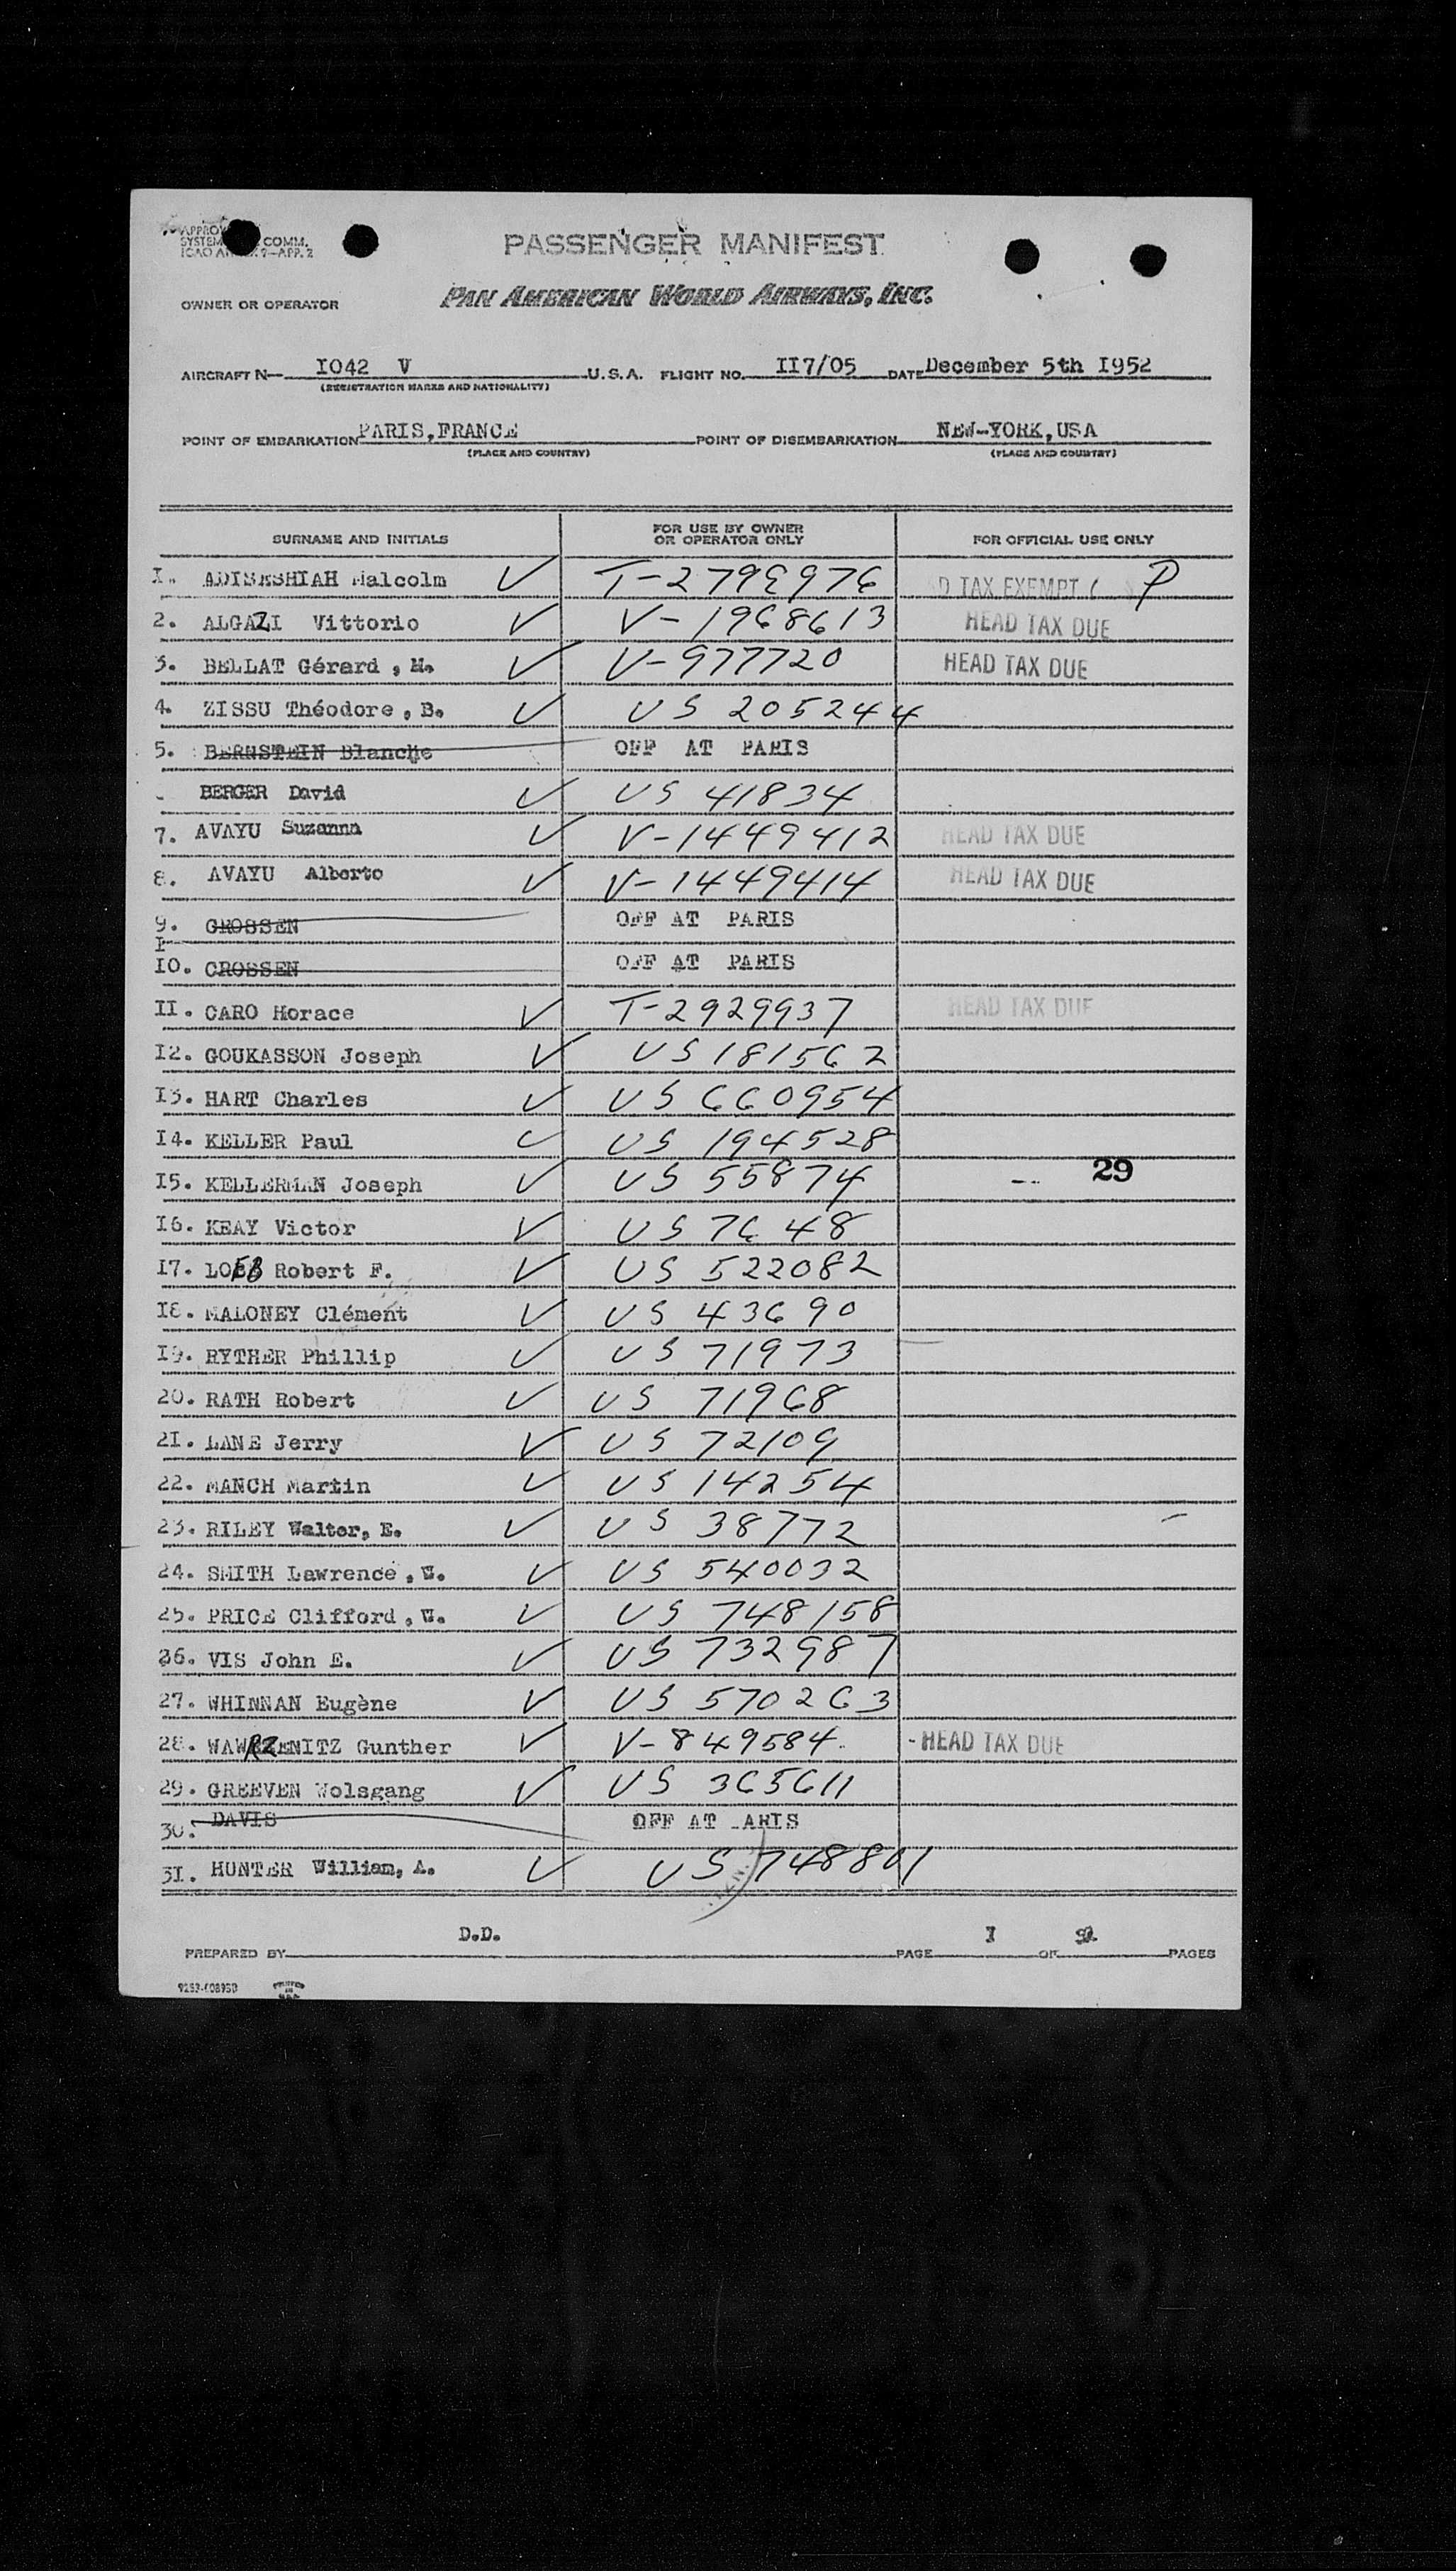 APPROV
SYSTEM COMM.
ICAO AN 9—APP. 2
PASSENGER MANIFEST
OWNER OR OPERATOR PAN AMERICAN WORLD AIRWAYS, INC.
AIRCRAFT N— I042 V U.S.A. FLIGHT NO. II7/05 DATE December 5th I952
(REGISTRATION MARKS AND NATIONALITY)
POINT OF EMBARKATION PARIS,FRANCE POINT OF DISEMBARKATION NEW-YORK,USA
(PLACE AND COUNTRY) (PLACE AND COUNTRY)
SURNAME AND INITIALS FOR USE BY OWNER OR OPERATOR ONLY FOR OFFICIAL USE ONLY
I. ADISESHIAH Malcolm ✓ T-2798976 D TAX EXEMPT P
2. ALGAZI Vittorio ✓ V-1968613 HEAD TAX DUE
3. BELLAT Gérard , M. ✓ V-977720 HEAD TAX DUE
4. ZISSU Théodore , B. ✓ US 205244
5. BERNSTEIN Blanche OFF AT PARIS
BERGER David ✓ US 41834
7. AVAYU Suzanna ✓ V-1449412 HEAD TAX DUE
8. AVAYU Alberto ✓ V-1449414 HEAD TAX DUE
9. GROSSEN OFF AT PARIS
I
I0. CROSSEN OFF AT PARIS
II. CARO Horace ✓ T-2929937 HEAD TAX DUE
I2. GOUKASSON Joseph ✓ US 181562
I3. HART Charles ✓ US 660954
I4. KELLER Paul ✓ US 194528
I5. KELLERMAN Joseph ✓ US 55874 -- 29
I6. KEAY Victor ✓ US 7648
I7. LOEB Robert F. ✓ US 522082
I8. MALONEY Clément ✓ US 43690
I9. RYTHER Phillip ✓ US 71973
20. RATH Robert ✓ US 71968
2I. LANE Jerry ✓ US 72109
22. MANCH Martin ✓ US 14254
23. RILEY Walter, E. ✓ US 38772
24. SMITH Lawrence , W. ✓ US 540032
25. PRICE Clifford , W. ✓ US 748158
26. VIS John E. ✓ US 732987
27. WHINNAN Eugène ✓ US 570263
28. WAWRZENITZ Gunther ✓ V-849584 - HEAD TAX DUE
29. GREEVEN Wolsgang ✓ US 365611
30. DAVIS OFF AT ARIS
3I. HUNTER William, A. ✓ US 748801
PREPARED BY D.D. PAGE I OF 2 PAGES
PRINTED IN U.S.A.